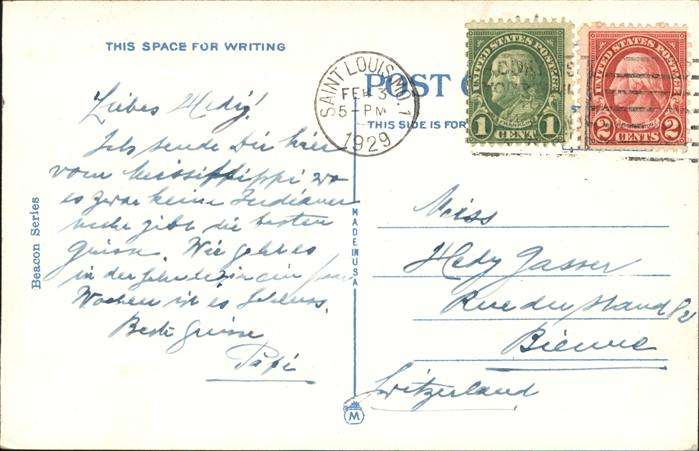 THIS SPACE FOR WRITING
Liebes Hedy!
Ich sende Dir hier
vom Mississippi wo
es zwar keine Indianer
mehr gibt die besten
Grüsse. Wie geht es
in der Schule? in ein paar
Wochen ist es Schluss.
Beste Grüsse
Papi
Beacon Series
MADE IN USA
M
SAINT LOUIS, MO. 1
FEB 3
5-PM
1929
POST
THIS SIDE IS FOR
UNITED STATES POSTAGE
1 CENT 1
UNITED STATES POSTAGE
2 CENTS 2
Miss
Hedy Gasser
Rue du Stand
Bienne
Switzerland